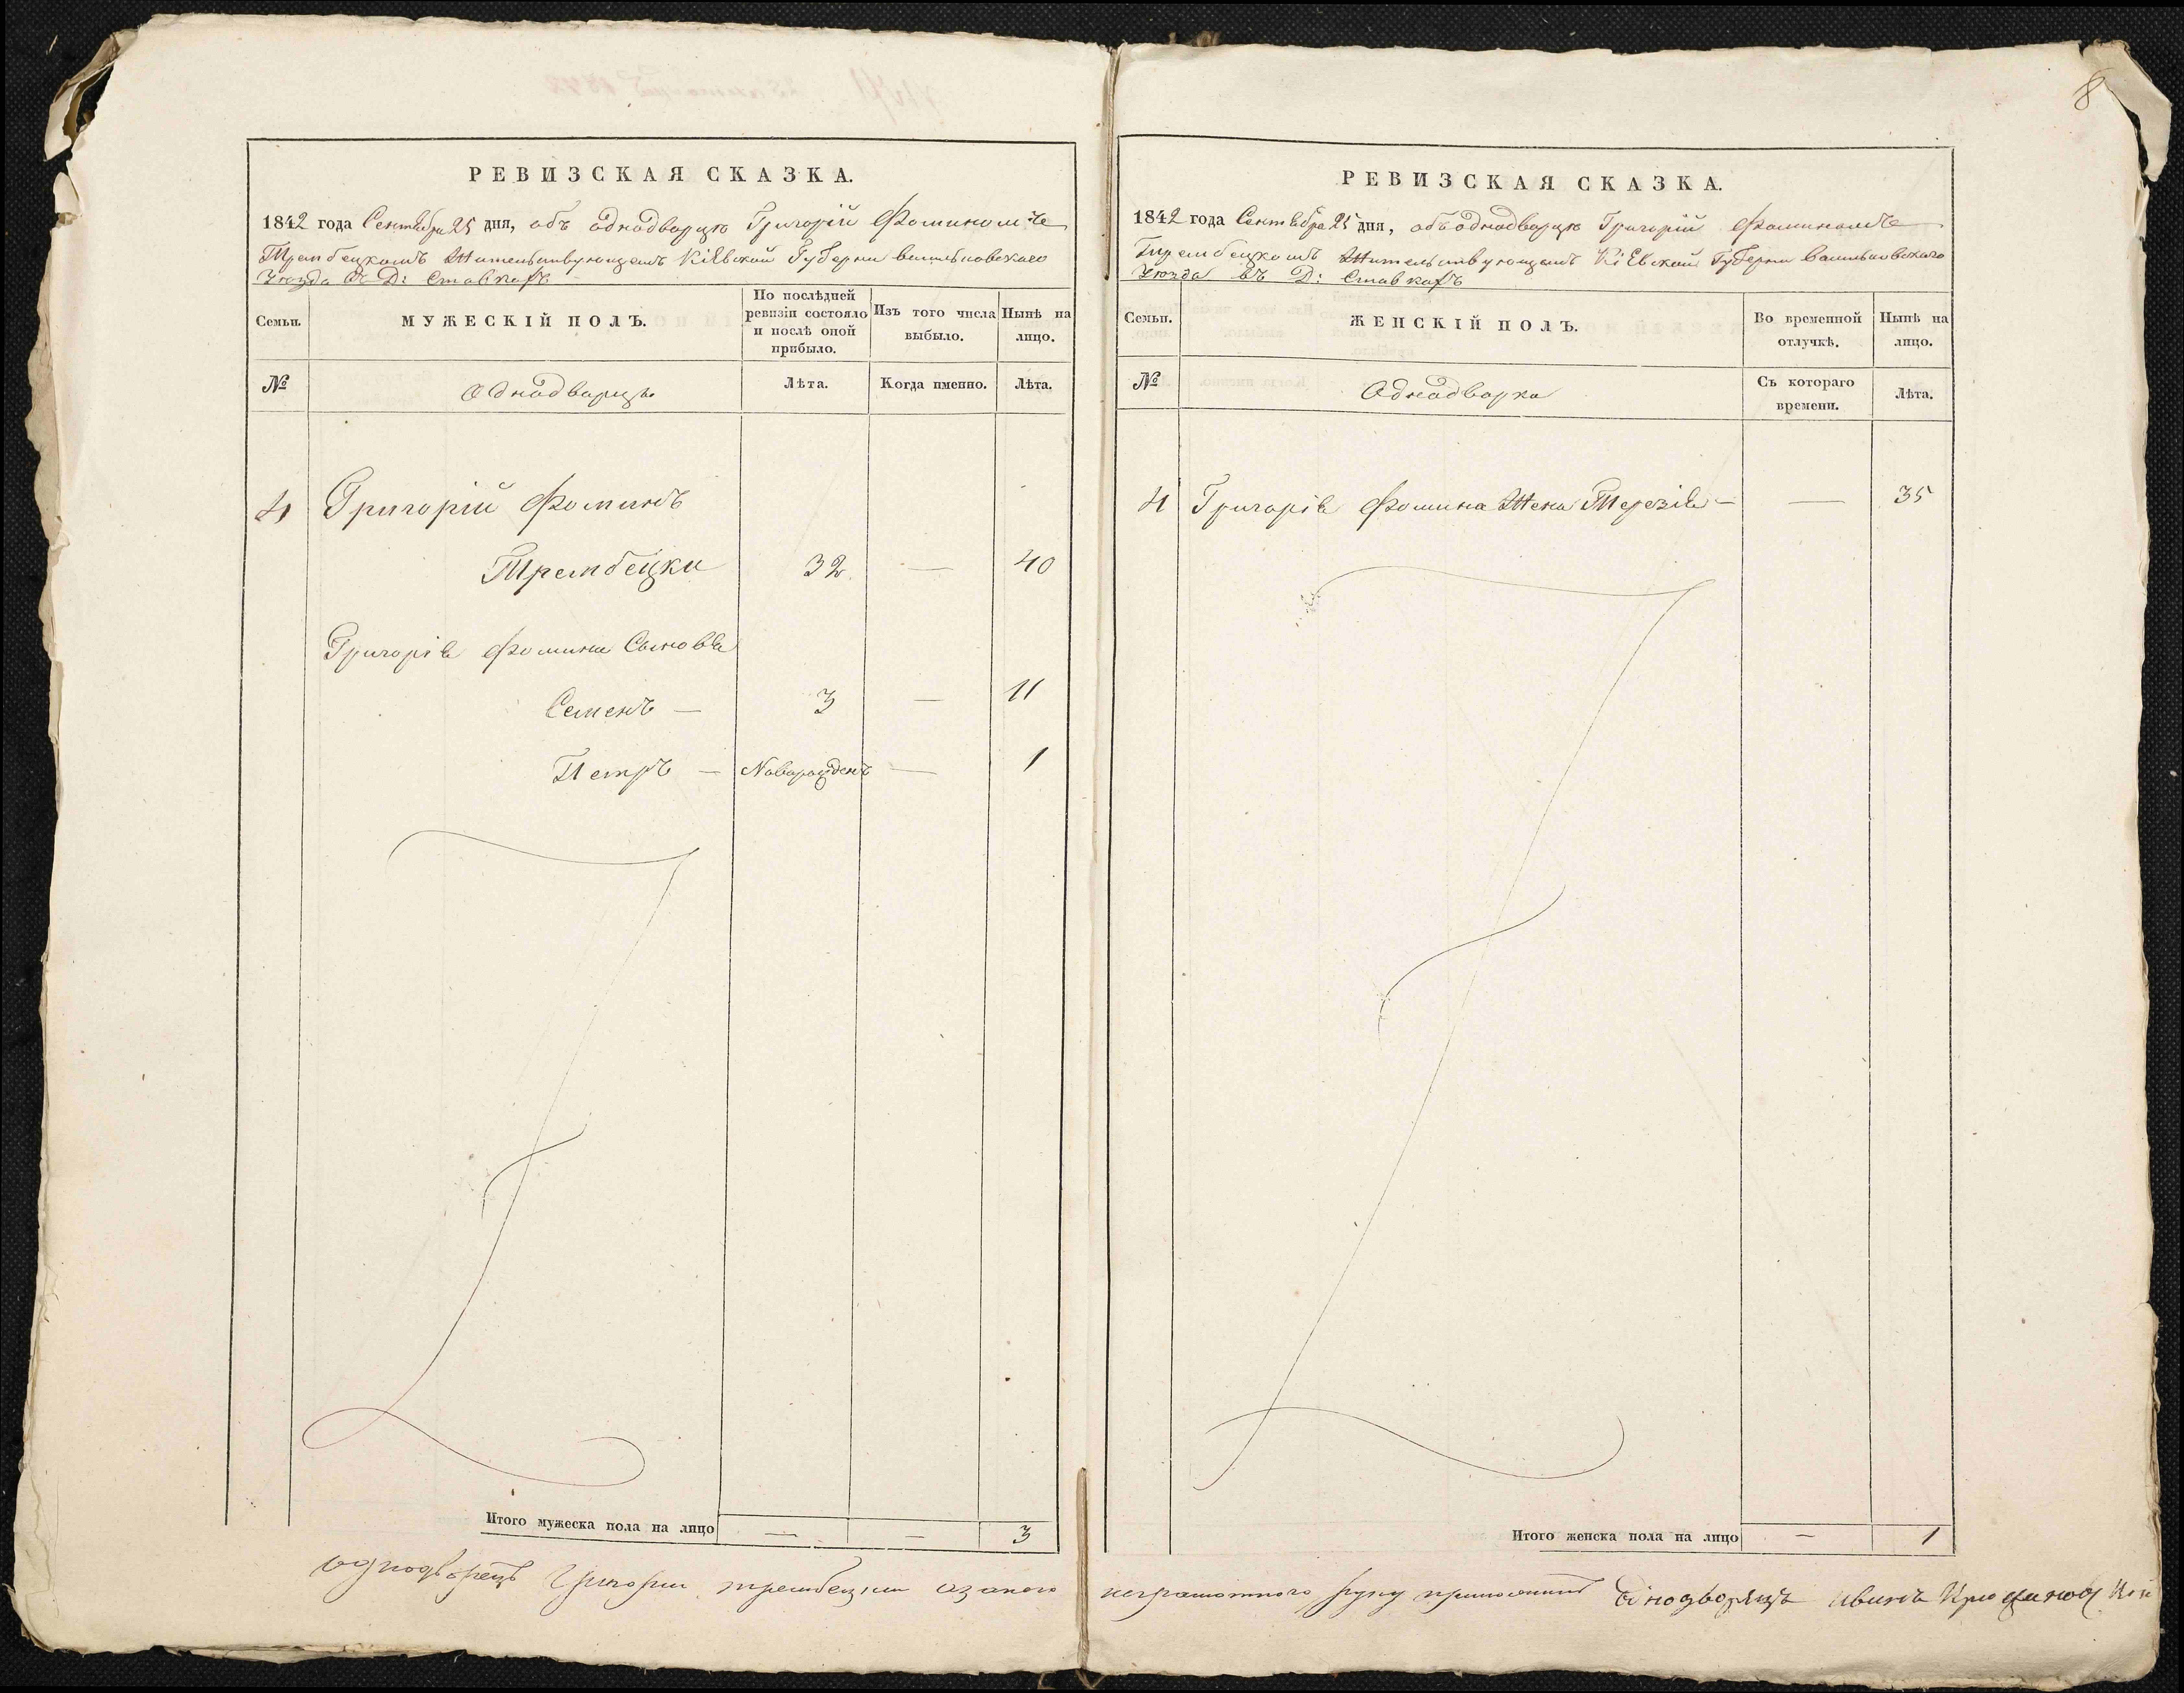 8
РЕВИЗСКАЯ СКАЗКА.
1842 года Сентебра 25 дня, объ однодворцѣ Григорій Фоминомъ
Трембецкомъ Жительствующемъ Кіевской Губерни васильковскаго
Уѣзда въ Д: Ставкахъ
Семьи.
МУЖЕСКІЙ ПОЛЪ.
По послѣдней ревизіи состояло и послѣ оной прибыло.
Изъ того числа выбыло.
Нынѣ на лицо.
№
Однодворцы
Лѣта.
Когда именно.
Лѣта.
4 Григорій Фоминъ
Трембецки 32 — 40
Григоріе Фомина Сыновъе
Семенъ — 3 — 11
Петръ — Новорожденъ — 1
Итого мужеска пола на лицо — — 3
однодворецъ Григории трембецки азакого
РЕВИЗСКАЯ СКАЗКА.
1842 года Сентебра 25 дня, объ однодворцѣ Григорій Фоминомъ
Трембецкомъ Жительствующемъ Кіевской Губерни васильковскаго
Уѣзда въ Д: Ставкахъ
Семьи.
ЖЕНСКІЙ ПОЛЪ.
Во временной отлучкѣ.
Нынѣ на лицо.
№
Однодворка
Съ котораго времени.
Лѣта.
4 Григоріе Фомина Жена Терезіе — — 35
Итого женска пола на лицо — 1
неграмотного руку приложилъ Однодворецъ Иванъ